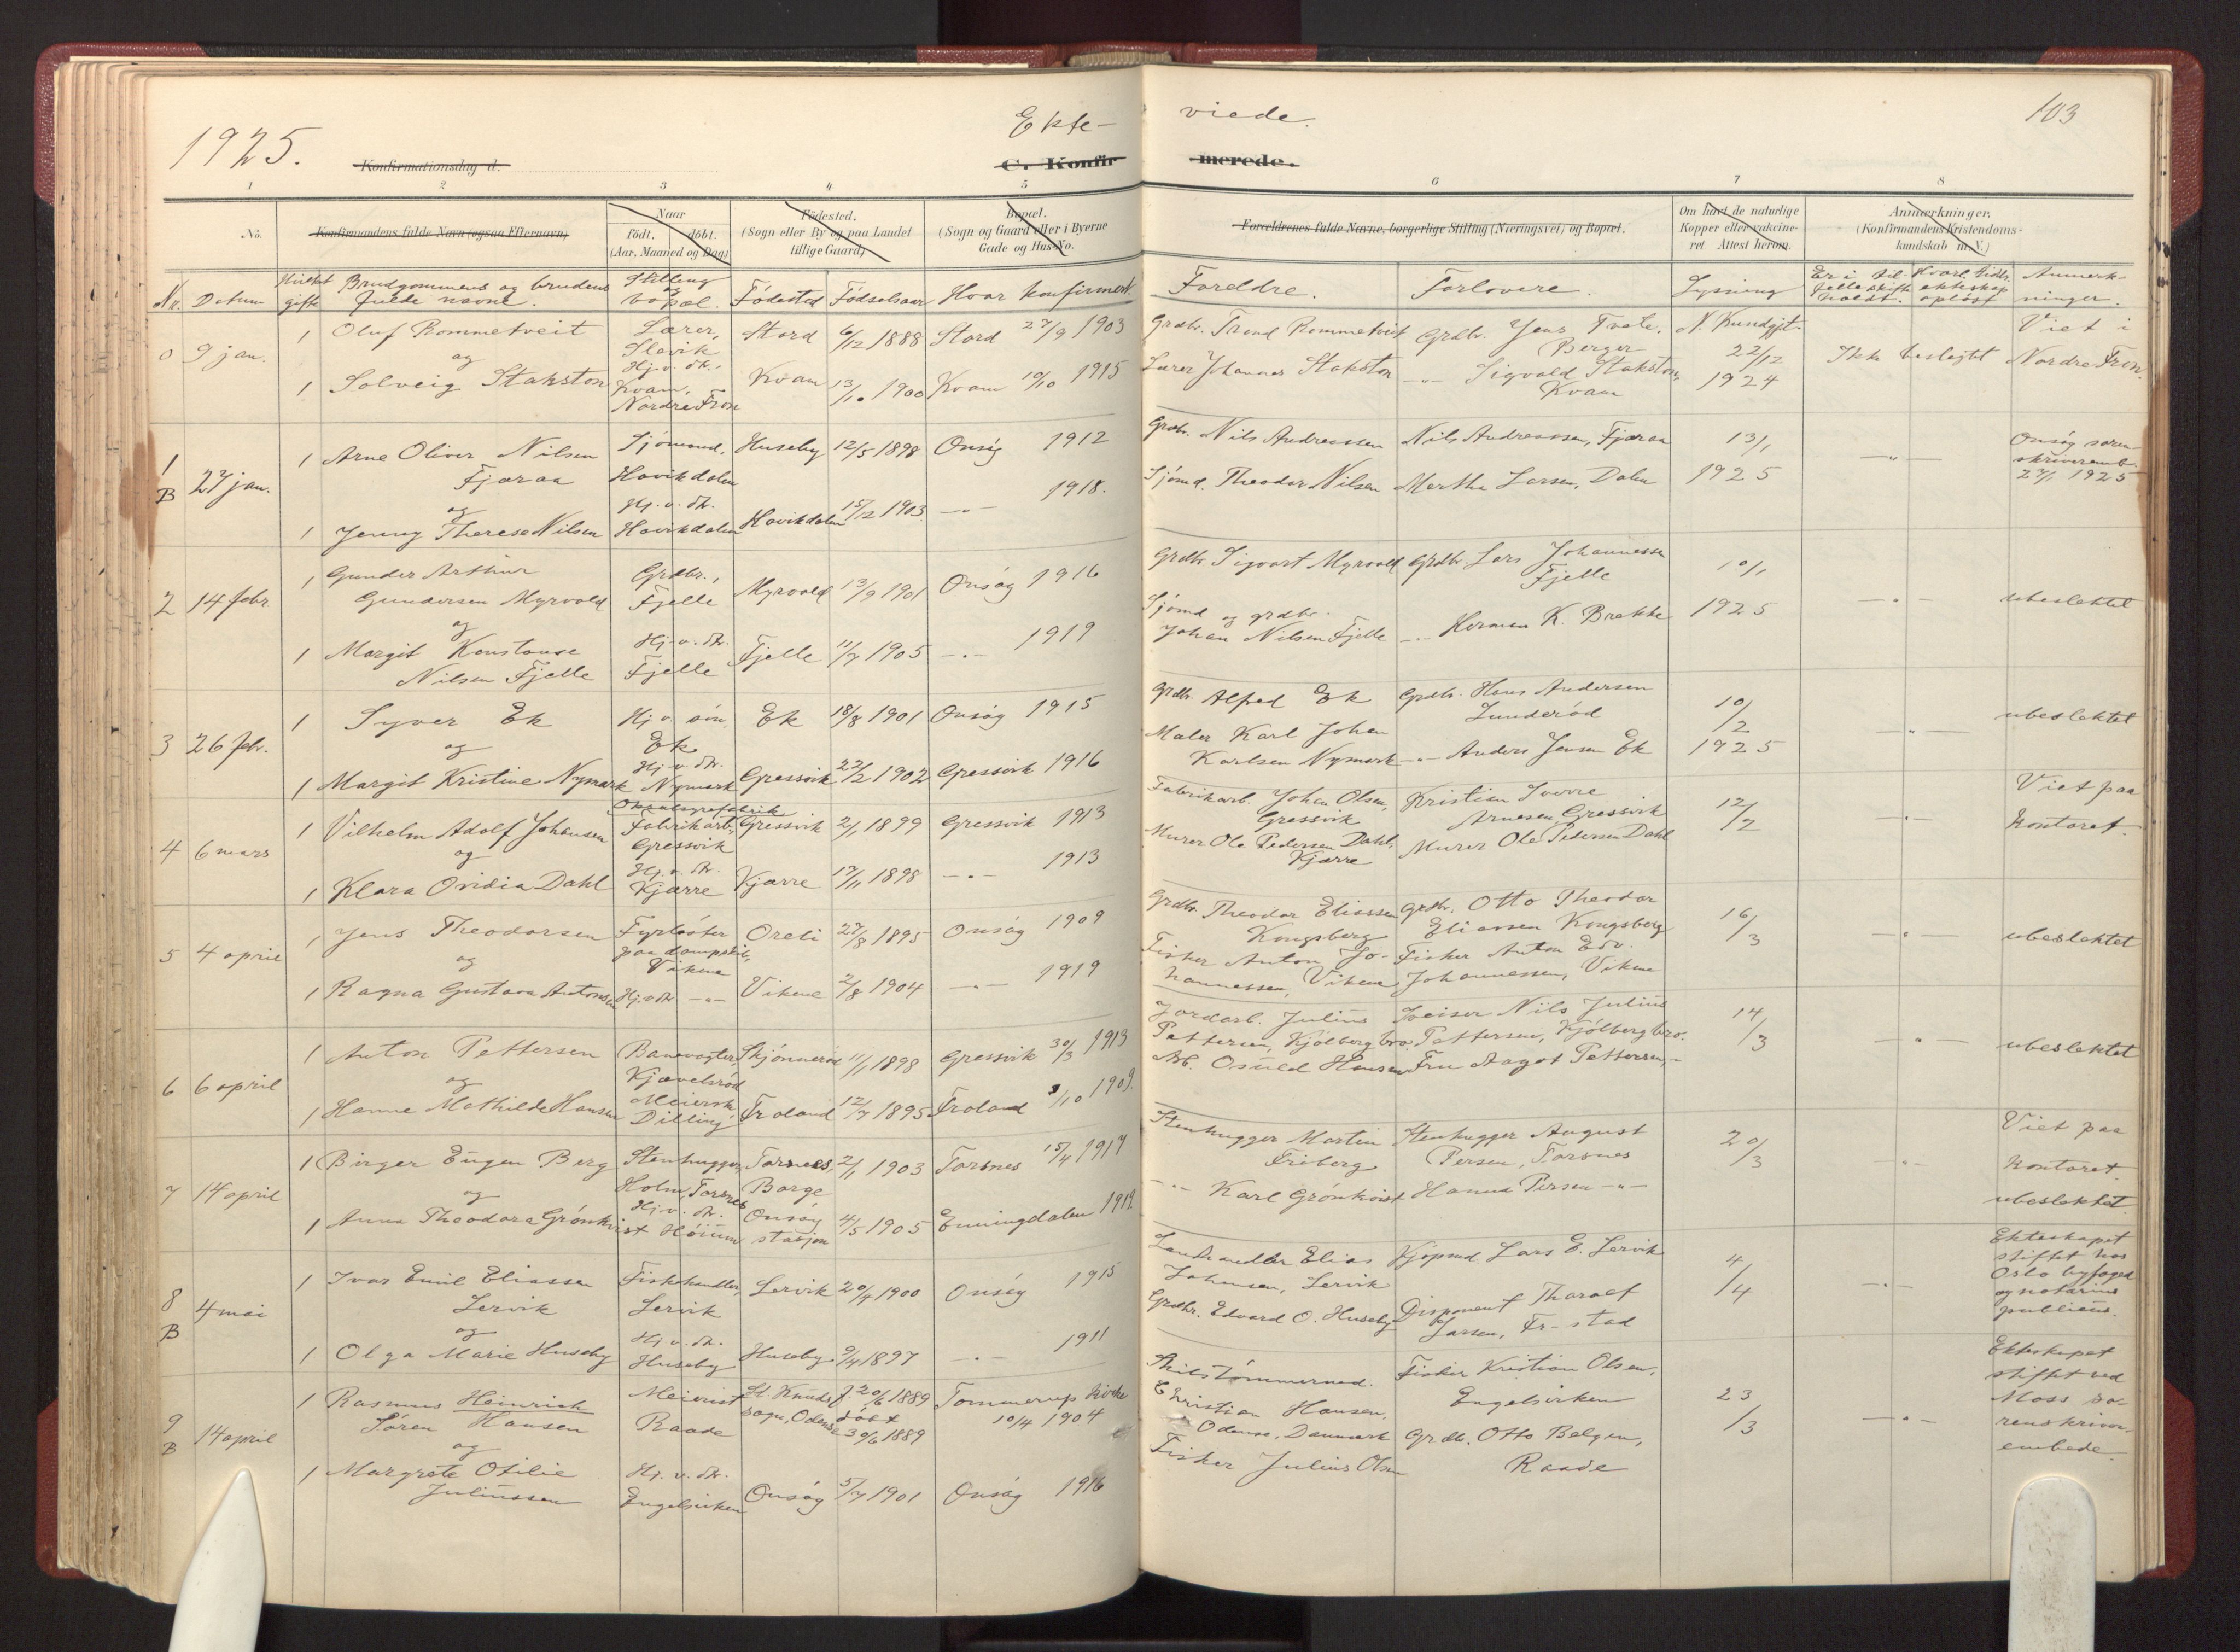 1925.
Ekte-
viede.
103
Konfirmationsdag d.
C. Konfir
merede.
1 2 3 4 5
6 7 8
No.
Konfirmandens fulde Navn (ogsaa Efternavn)
Naar
født. døbt.
(Aar, Maaned og Dag)
Fødested.
(Sogn eller By og paa Landet
tillige Gaard)
Bopæl.
(Sogn og Gaard eller i Byerne
Gade og Hus-No.
Forældrenes fulde Navne, borgerlige Stilling (Næringsvei) og Bopæl.
Om havt de naturlige
Kopper eller vakcine-
ret Attest herom.
Anmærkninger.
(Konfirmandens Kristendoms-
kundskab m. V.)
Nr. Datum
Hvilket
gifte
Brudgommens og brudens
fulde navne.
Stilling
og
bopæl.
Fødested Fødselsaar Hvor konfirmert
Foreldre. Forlovere. Lysning
Er i til
felle skifte
holdt.
Hvorl. tidl.
ekteskap
opløst
Anmerk-
ninger.
0 9 jan.
1 Oluf Rommetveit Lærer, Slevik Stord 6/12 1888 Stord 27/9 1903
og
1 Solveig Stakston Hj. v. dtr., Kvam, Nordre Fron Kvam 13/10 1900 Kvam 10/10 1915
Grdbr. Trond Rommetveit Grdbr. Jens Tvete, Berger
Lærer Johannes Stakston -"- Sigvald Stakston, Kvam
N. Kundgjt. 22/12 1924
Ikke beslegtet
Viet i
Nordre Fron.
1 B 27 jan.
1 Arne Oliver Nilsen Fjæraa Sjømand, Havikdalen Huseby 12/5 1898 Onsøy 1912
og
1 Jenny Therese Nilsen Hj. v. dtr. Havikdalen Havikdalen 15/12 1903 -"- 1918.
Grdbr. Nils Andreassen Nils Andreassen, Fjæraa
Sjømd. Theodor Nilsen Marthe Larsen, Dalen
13/1 1925
-"-
Onsøy soren-
skriveremb.
27/1 1925
2 14 febr.
1 Gunder Arthur
Gundersen Myrvold Grdbr., Fjelle Myrvold 13/9 1901 Onsøy 1916
og
1 Margit Konstanse
Nilsen Fjelle Hj. v. dtr. Fjelle Fjelle 11/7 1905 -"- 1919
Grdbr. Sigvart Myrvold Grdbr. Lars Johannessen Fjelle
Sjømd og grdbr.
Johan Nilsen Fjelle -"- Herman K. Brekke
10/1 1925
-"- ubeslektet
3 26 febr.
1 Syver Ek Hj. v. søn, Ek Ek 18/8 1901 Onsøy 1915
og
1 Margit Kristine Nymark Hj. v. dtr. Nymark Gressvik 22/2 1902 Gressvik 1916
Grdbr. Alfred Ek Grdbr. Hans Andersen
Maler Karl Johan
Karlsen Nymark -"- Anders Jensen Ek
10/2 1925
" ubeslektet
4 6 mars
1 Vilhelm Adolf Johansen Fabrikarb., Gressvik Gressvik 2/1 1899 Gressvik 1913
og
1 Klara Ovidia Dahl Hj. v. dtr. Kjærre Kjærre 17/11 1898 -"- 1913
Fabrikarb. Johan Olsen, Gressvik Kristian Sverre
Arnesen, Gressvik
Murer Ole Pedersen Dahl, Kjærre Murer Ole Pedersen Dahl
12/2
-"-
Viet paa
kontoret.
5 4 april
1 Jens Theodorsen Fyrbøter paa dampskib, Vikene Oreli 27/8 1895 Onsøy 1909
og
1 Ragna Gustava Antonsen Hj. v. dtr. -"- Vikene 2/8 1904 -"- 1919
Grdbr. Theodor Eliassen Kongsberg Grdbr. Otto Theodor
Eliassen Kongsberg
Fisker Anton Jo-
hannessen, Vikene Fisker Anton Edv.
Johannessen, Vikene
16/3
-"- ubeslektet
6 6 april
1 Anton Pettersen Banevogter, Kjævelsrød Skjønnerød 11/1 1898 Gressvik 30/3 1913
og
1 Hanne Mathilde Hansen Meiersk Dilling Troland 12/7 1895 Troland 3/10 1909.
Jordarb. Julius
Pettersen, Kjølberg bro. Sveiser Nils Julius
Pettersen, Kjølberg bro.
Arb. Osuld Hansen Fru Aagot Pettersen, -"-
14/3
-"- ubeslektet
7 14 april
1 Birger Eugen Berg Stenhugger, Holm, Torsnes Torsnes, Borge 2/1 1903 Torsnes 15/4 1917
og
1 Anna Theodora Grønkvist Hj. v. dtr. Høium Onsøy stasjon 4/5 1905 Enningdalen 1919.
Stenhugger Martin
Friberg Stenhugger August
Persen, Torsnes
-"- Karl Grønkvist Hanna Persen -"-
20/3
-"-
Viet paa
kontoret.
ubeslektet.
8 B 4 mai
1 Ivar Emil Eliassen
Lervik Fiskehandler, Lervik Lervik 20/4 1900 Onsøy 1915
og
1 Olga Marie Huseby Hj. v. dtr. Huseby Huseby 9/4 1897 -"- 1911
Landhandler Elias
Johansen, Lervik Kjøpmd Lars E. Lervik
Grdbr. Edvard O. Huseby Disponent Tharalf
Larsen, Fr-stad
4/4
-"-
Ekteskapet
stiftet hos
Oslo byfoged
og notarius
publicus.
9 B 14 april
1 Rasmus Heinrich
Søren Hansen Meierist Raade St. Knuds sogn, Odense f. 20/6 1889 døbt 30/6 1889 Tommerup kirke 10/4 1904
og
1 Margrete Otilie
Juliussen Hj. v. dtr. Engelsviken Onsøy 5/7 1901 Onsøy 1916
Christian Hansen,
Odense, Danmark Fisker Kristian Olsen,
Engelsviken
Fisker Julius Olsen Grdbr. Otto Balgen,
Raade
23/3
-"-
Ekteskapet
stiftet ved
Moss so-
renskriver-
embede.